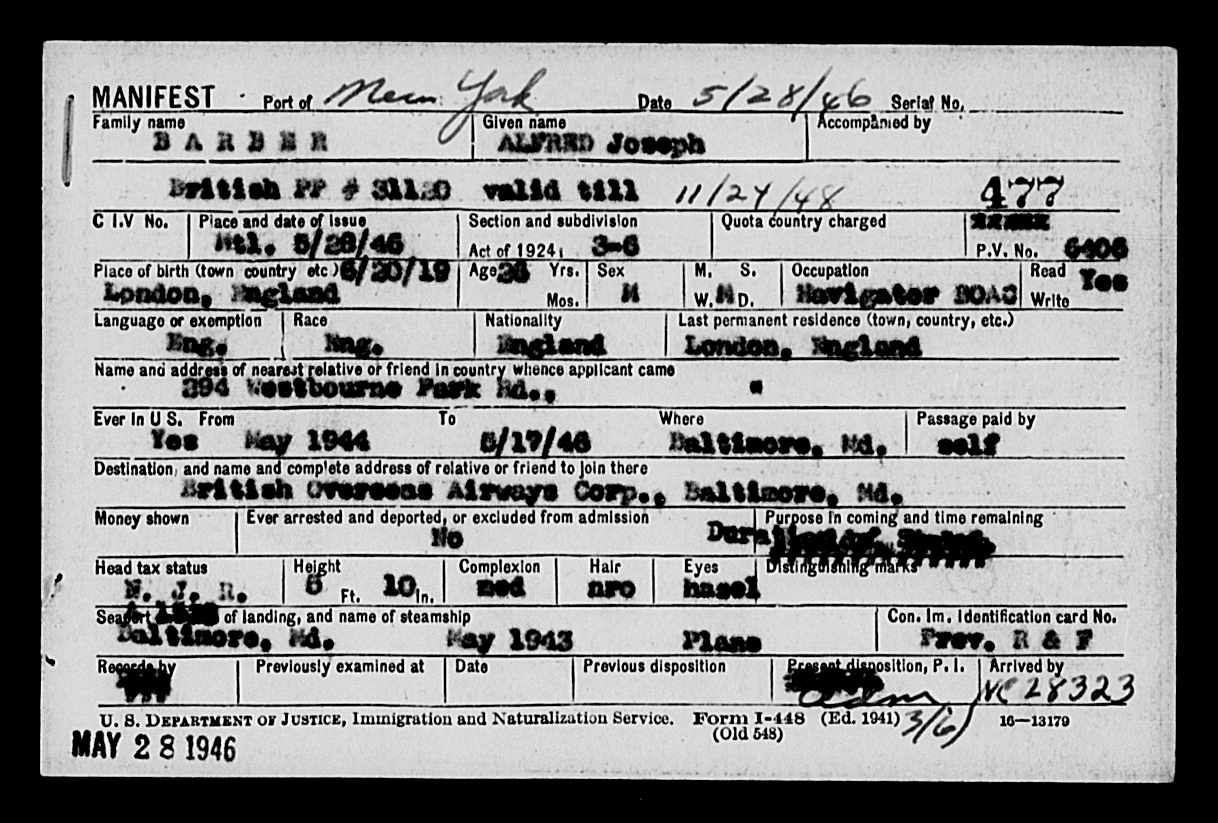 MANIFEST Port of New York Date 5/28/46 Serial No.
Family name Given name Accompanied by
BARBER ALFRED Joseph
British PP # 31120 valid till 11/24/48 477
C I.V No. Place and date of issue Section and subdivision Quota country charged
Mtl. 5/28/46 Act of 1924; 3-6 P.V. No. 6406
Place of birth (town country etc.) 6/20/19 Age Yrs. Sex M. S. Occupation Read Yes
London, England Mos. M W. M D. Navigator BOAC Write
Language or exemption Race Nationality Last permanent residence (town, country, etc.)
Eng. Eng. England London, England
Name and address of nearest relative or friend in country whence applicant came
394 Westbourne Park Rd., "
Ever in U S. From To Where Passage paid by
Yes May 1944 5/17/46 Baltimore, Md. self
Destination, and name and complete address of relative or friend to join there
British Overseas Airways Corp., Baltimore, Md.
Money shown Ever arrested and deported, or excluded from admission Purpose in coming and time remaining
No Dura
Head tax status Height Complexion Hair Eyes Distinguishing marks
N. J. R. 5 Ft. 10 In. med bro hazel
Seaport of landing, and name of steamship Con. Im. Identification card No.
Baltimore, Md. May 1943 Plane Prev. R & F
Records by Previously examined at Date Previous disposition Present disposition, P. I. Arrived by
adm NC 28323
U. S. DEPARTMENT OF JUSTICE, Immigration and Naturalization Service. Form I-448 (Ed. 1941) 3/6) 16—13179
(Old 548)
MAY 28 1946